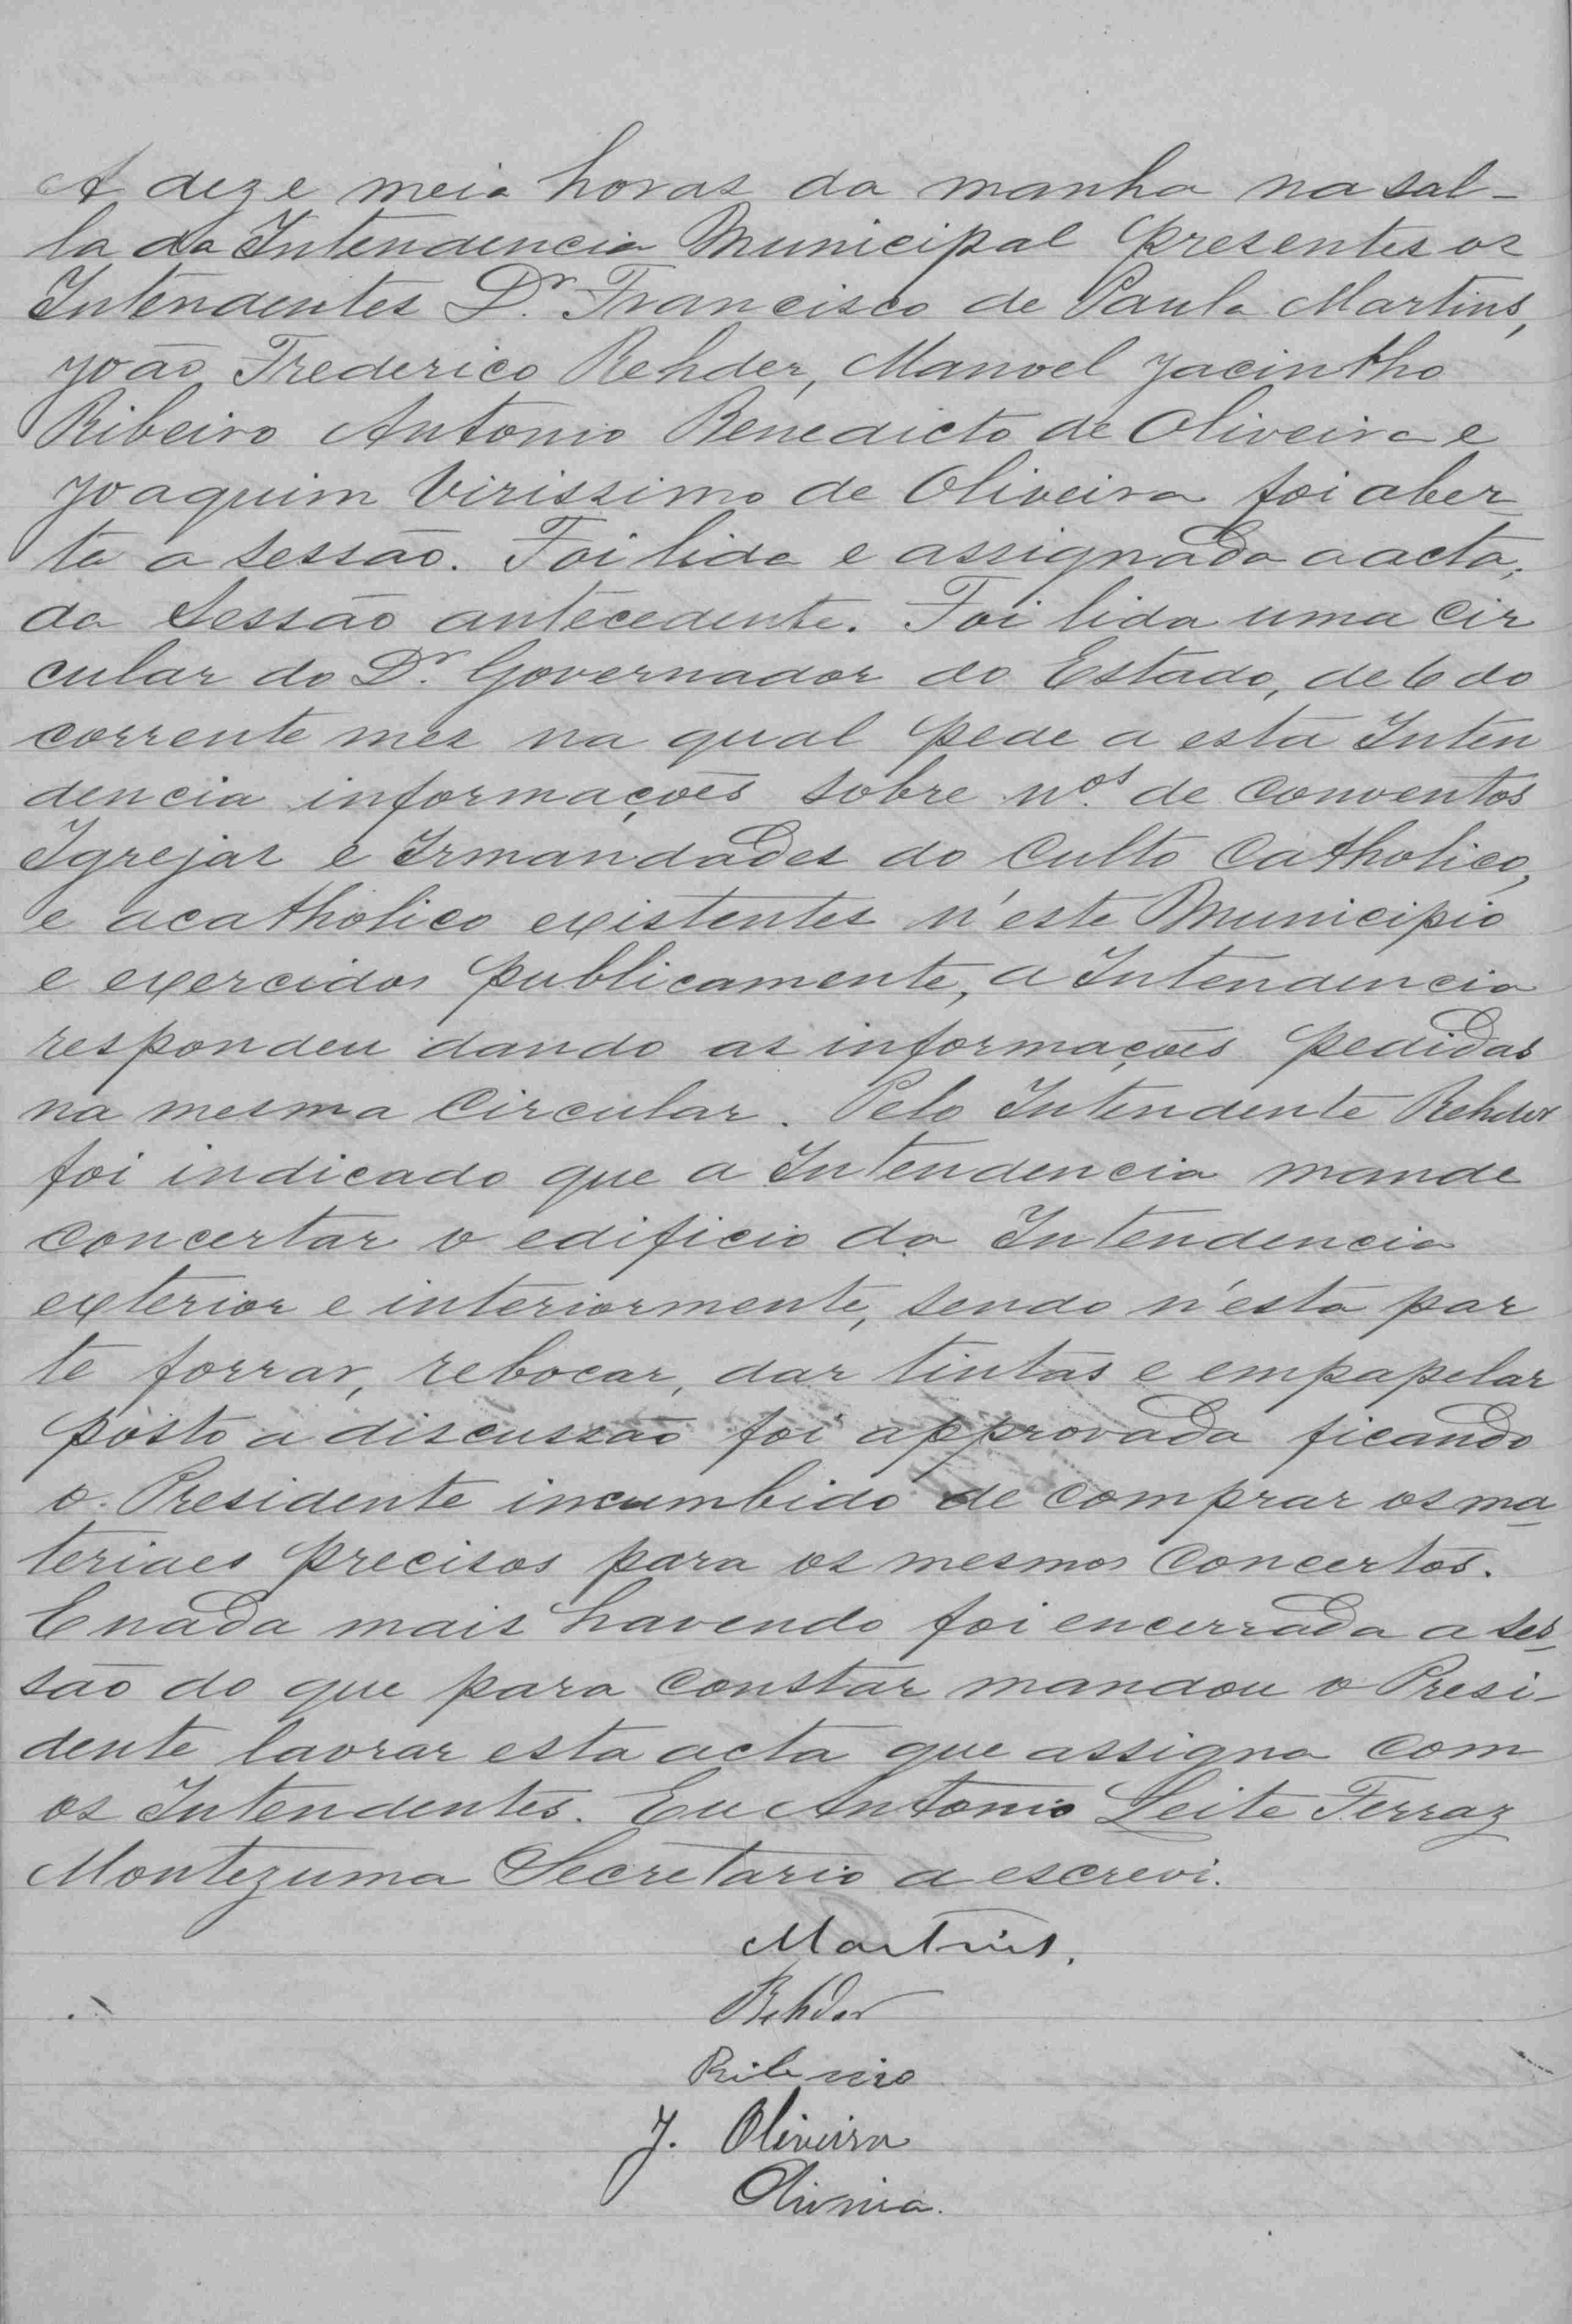 A dez e meia horas da manha na sal-
la da Intendencia Municipal presentes os
Intendentes Dr. Francisco de Paula Martins,
João Frederico Rehder, Manoel Jacintho
Ribeiro Antonio Benedicto de Oliveira e
Joaquim Virissimo de Oliveira foi aber
ta a sessão. Foi lida e assignada a acta,
da Sessão antecedente. Foi lida uma cir
cular do Dr. Governador do Estado, de 6 do
corrente mes na qual pede a esta Inten
dencia informações sobre nos. de conventos
Igrejas e Irmandades do culto Catholico,
e acatholico existentes n'este Municipio
e exercidos publicamente, a Intendencia
respondeu dando as informações pedidas
na mesma Circular. Pelo Intendente Rehder
foi indicado que a Intendencia mande
concertar o edificio da Intendencia
exterior e interiormente, sendo n'esta par
te forrar, rebocar, dar tintas e empapelar
posto a discussão foi approvada ficando
o Presidente incumbido de comprar os ma
teriaes precisos para os mesmos concertos.
E nada mais havendo foi encerrada a ses
são do que para constar mandou o Presi-
dente lavrar esta acta que assigna com
os Intendentes. Eu Antonio Leite Ferraz
Montezuma Secretario a escrevi.
Martins.
Rehder
Ribeiro
J. Oliveira
Oliveira.